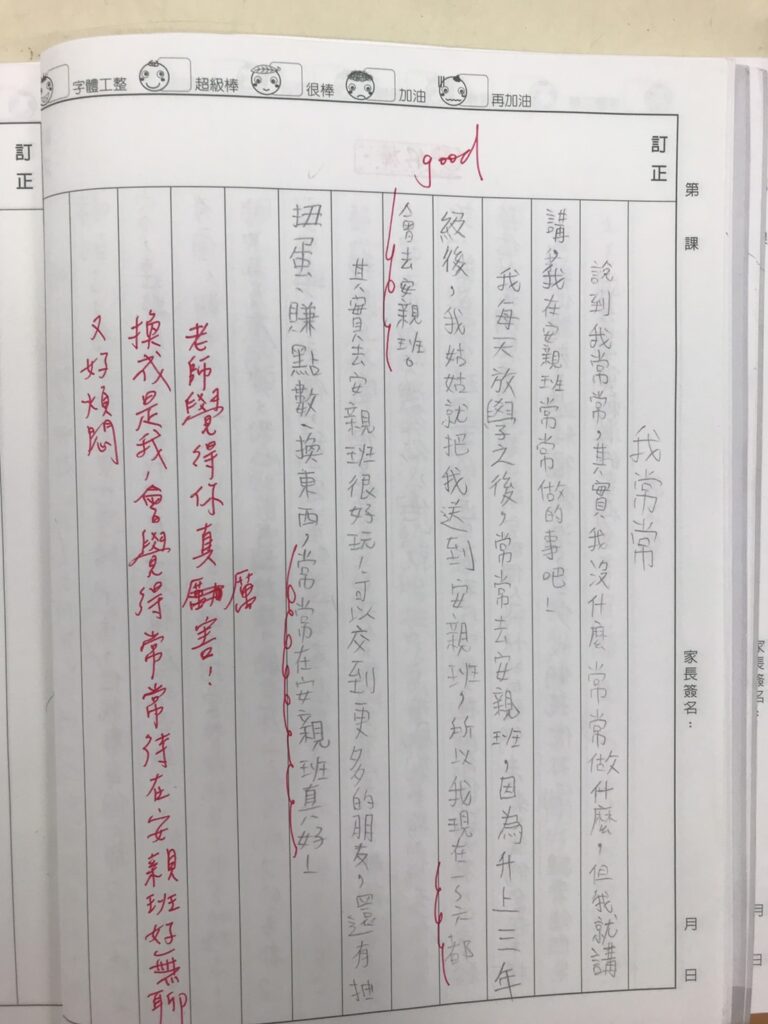 字體工整 超級棒 很棒 加油 再加油
第 課
家長簽名：
月 日
訂正
good
我常常
說到我常常，其實我沒什麼常常做什麼，但我就講
講，我在安親班常常做的事吧！
我每天放學之後，常常去安親班，因為升上三年
級後，我姑姑就把我送到安親班，所以我現在一~六都
會去安親班。
其實去安親班很好玩！可以交到更多的朋友，還有抽
扭蛋、賺點數、換東西，常常在安親班真好！
老師覺得你真厲害！
換成是我，會覺得常常待在安親班好無聊
又好煩悶
訂正
家長簽名：
月
日